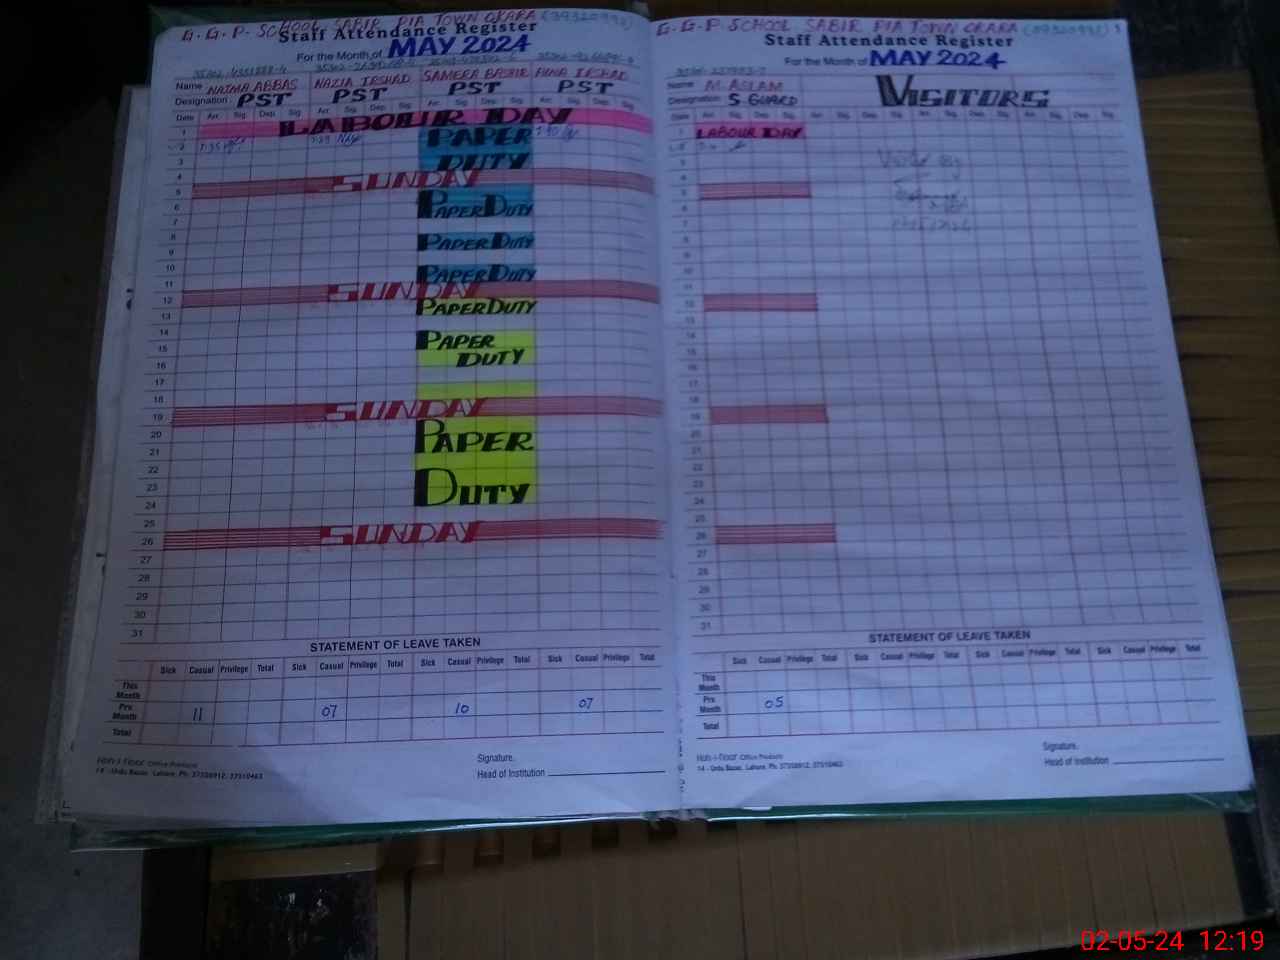 G.G.P. SCHOOL SABIR PIA TOWN OKARA
Staff Attendance Register
For the Month of MAY 2024
Name NAJMA ABBAS NAZIA IRSHAD SAMERA BASHIR IRSHAD
Designation PST PST PST PST
Date Arr. Sig. Dep. Sig. Arr. Sig. Dep. Sig. Arr. Sig. Dep. Sig. Arr. Sig. Dep. Sig.
1 LABOUR DAY
2 PAPER
3 DUTY
4
5 SUNDAY
6 PAPER DUTY
7
8 PAPER DUTY
9
10 PAPER DUTY
11
12 SUNDAY
13 PAPER DUTY
14
15 PAPER
16 DUTY
17
18
19 SUNDAY
20 PAPER
21
22
23 DUTY
24
25
26 SUNDAY
27
28
29
30
31
STATEMENT OF LEAVE TAKEN
Sick Casual Privilege Total Sick Casual Privilege Total Sick Casual Privilege Total Sick Casual Privilege Total
This Month
Prv. Month 11 07 10 07
Total
Signature.
Head of Institution
Office Products
14 - Urdu Bazar, Lahore. Ph: 37358912, 37310463
G.G.P. SCHOOL SABIR PIA TOWN OKARA
Staff Attendance Register
For the Month of MAY 2024
Name M. ASLAM
Designation S. GUARD VISITORS
Date Arr. Sig. Dep. Sig. Arr. Sig. Dep. Sig. Arr. Sig. Dep. Sig. Arr. Sig. Dep. Sig.
1 LABOUR DAY
2
3
4
5
6
7
8
9
10
11
12
13
14
15
16
17
18
19
20
21
22
23
24
25
26
27
28
29
30
31
STATEMENT OF LEAVE TAKEN
Sick Casual Privilege Total Sick Casual Privilege Total Sick Casual Privilege Total Sick Casual Privilege Total
This Month
Prv. Month 05
Total
Signature.
Head of Institution
Office Products
14 - Urdu Bazar, Lahore. Ph: 37358912, 37310463
02-05-24 12:19